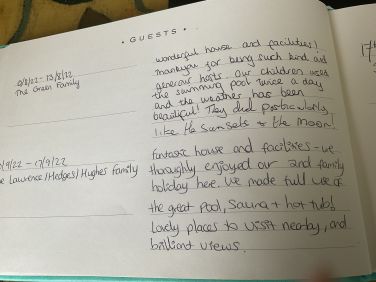 • GUESTS •
6/8/22 - 13/8/22
The Green Family
wonderful house and facilities!
Thankyou for being such kind and
generous hosts. Our children used
the swimming pool twice a day
and the weather has been
beautiful! They did particularly
like the sunsets & the moon!
/9/22 - 17/9/22
e Lawrence/Hedges/Hughes Family
Fantastic house and facilities - we
thoroughly enjoyed our 2nd family
holiday here. We made full use of
the great pool, sauna + hot tub!
Lovely places to visit nearby, and
brilliant views.